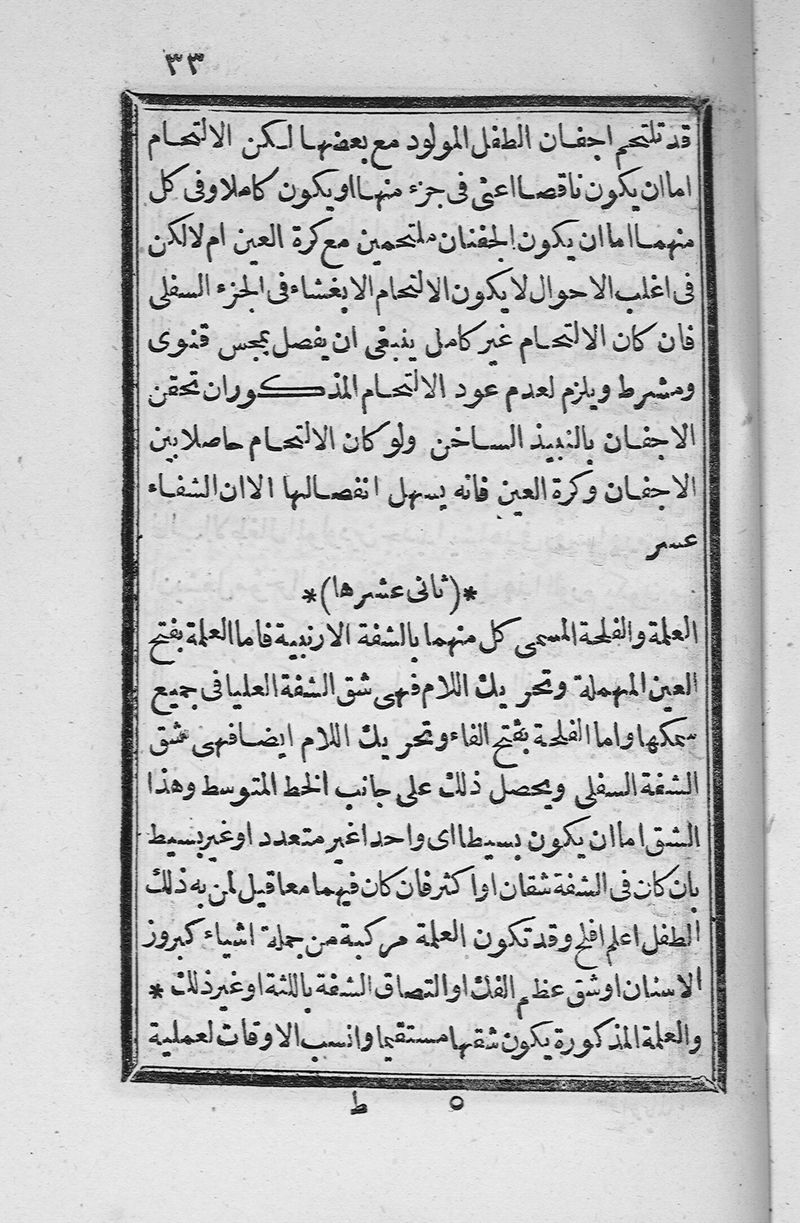 ٣٣
قد تلتحم اجفان الطفل المولود مع بعضها لكن الالتحام
اما ان يكون ناقصا اعنى فى جزء منها او يكون كاملا وفى كل
منهما اما ان يكون الجفنان ملتحمين مع كرة العين ام لا لكن
فى اغلب الاحوال لا يكون الالتحام الا بغشاء فى الجزء السفلى
فان كان الالتحام غير كامل ينبغى ان يفصل بمجس قنوى
ومشرط ويلزم لعدم عود الالتحام المذكور ان تحقن
الاجفان بالنبيذ الساخن ولو كان الالتحام حاصلا بين
الاجفان وكرة العين فانه يسهل انفصالها الا ان الشفاء
عسر
*(ثانى عشرها)*
العلمة والفلحة المسمى كل منهما بالشفة الارنبية فاما العلمة بفتح
العين المهملة وتحريك اللام فهى شق الشفة العليا فى جميع
سمكها واما الفلحة بفتح الفاء وتحريك اللام ايضا فهى شق
الشفة السفلى ويحصل ذلك على جانب الخط المتوسط وهذا
الشق اما ان يكون بسيطا اى واحدا غير متعدد او غير بسيط
بان كان فى الشفة شقان او اكثر فان كان فيهما معا قيل لمن به ذلك
الطفل اعلم افلح وقد تكون العلمة مركبة من جملة اشياء كبروز
الاسنان او شق عظم الفك او التصاق الشفة باللثة او غير ذلك *
والعلمة المذكورة يكون شقها مستقيما وانسب الاوقات لعملية
٥ ط